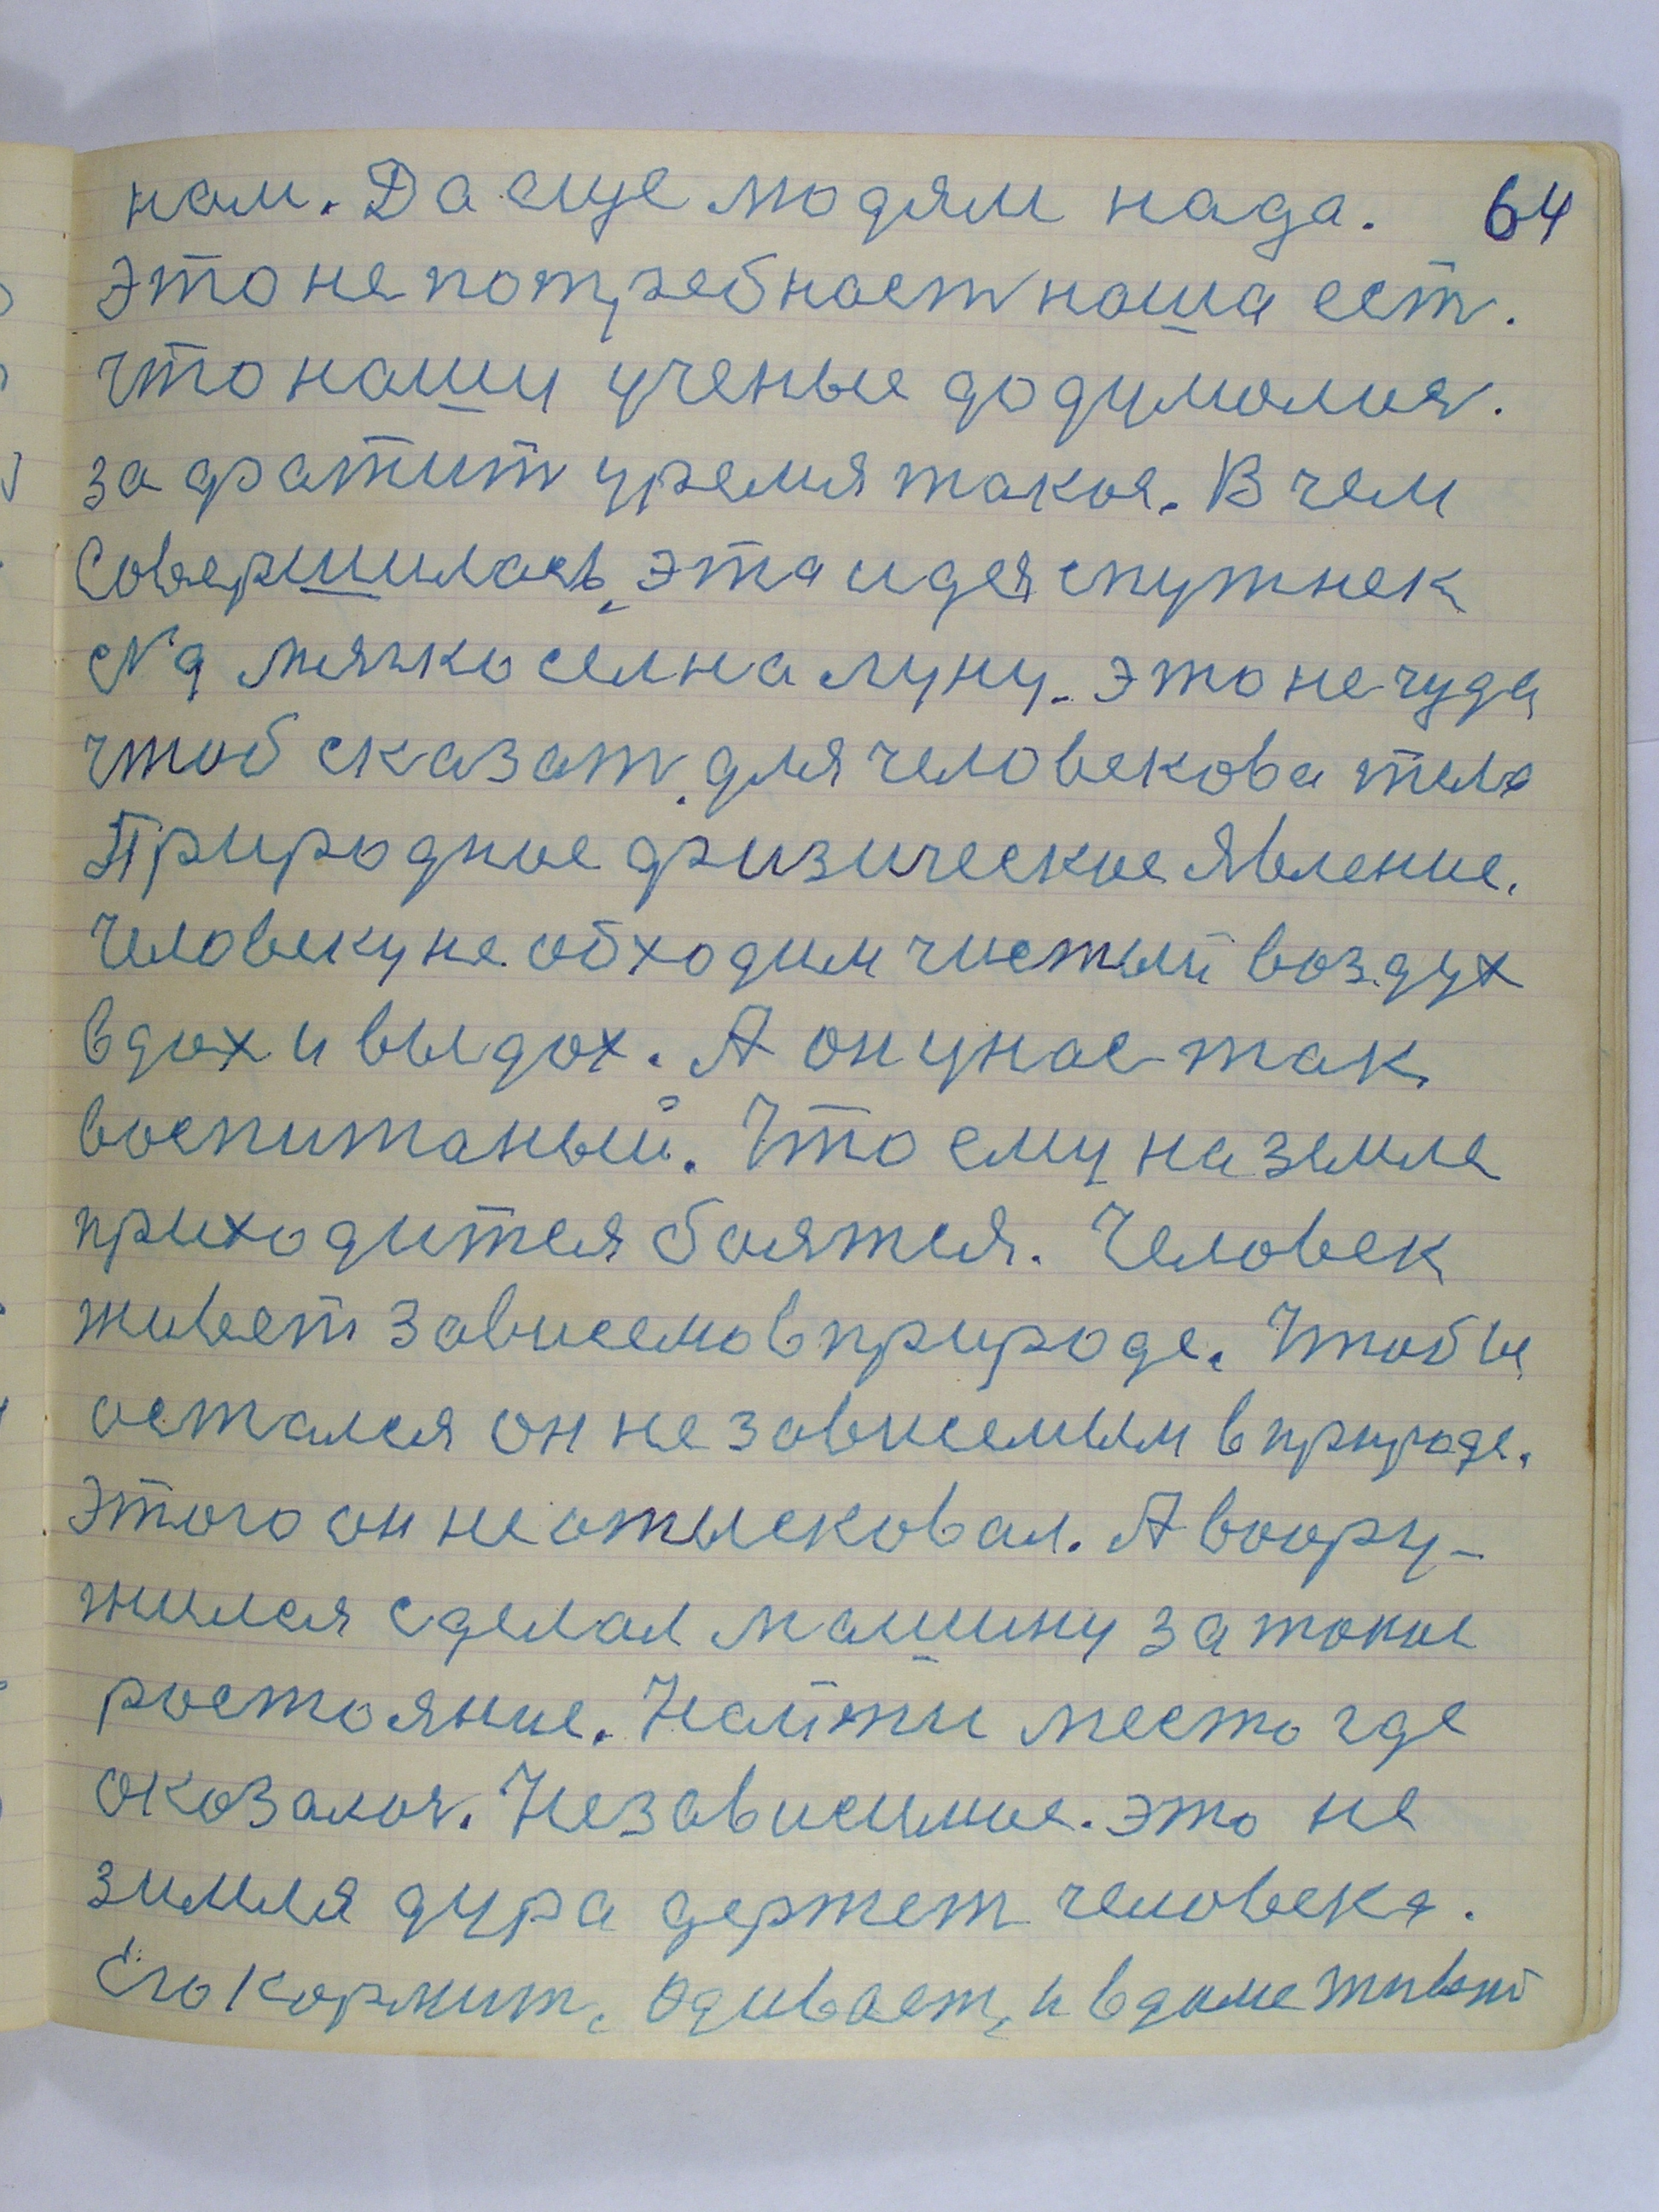 нам. Да еще людям нада. 64
Это не потребност наша ест.
Что наши ученые додумолися.
за фратит уремя такое. В чем
Совершилась, эта идея спутнек
N 9 мягко сел на луну. это не чуда
чтоб сказат, для человекова тела
Природное физическое явление.
Человеку не обходим чистый воздух
вдох и выдох. А он у нас так
воспитаный. Что ему на земле
приходится боятся. Человек
живет зависемо в природе. Чтобы
остался он не зависемым в природе.
Этого он не отысковал. А воору-
жился сделал машину за токое
ростояние. Найти место где
окозалося. Независимое. это не
зимля дура держет человека.
Его кормит, одивает, и в доме живет